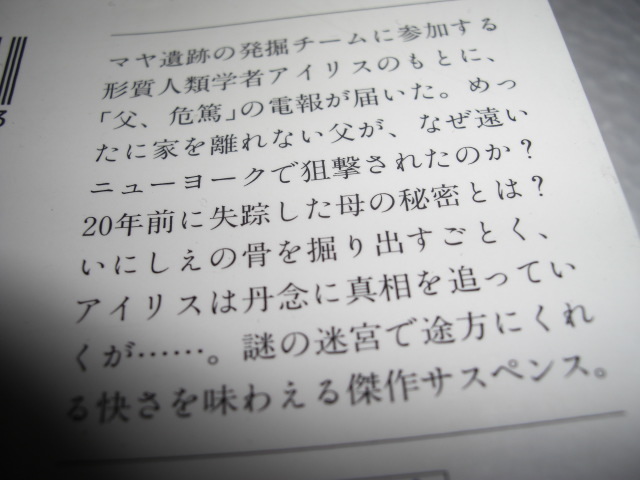 マヤ遺跡の発掘チームに参加する
形質人類学者アイリスのもとに、
「父、危篤」の電報が届いた。めっ
たに家を離れない父が、なぜ遠い
ニューヨークで狙撃されたのか？
20年前に失踪した母の秘密とは？
いにしえの骨を掘り出すごとく、
アイリスは丹念に真相を追ってい
くが……。謎の迷宮で途方にくれ
る快さを味わえる傑作サスペンス。